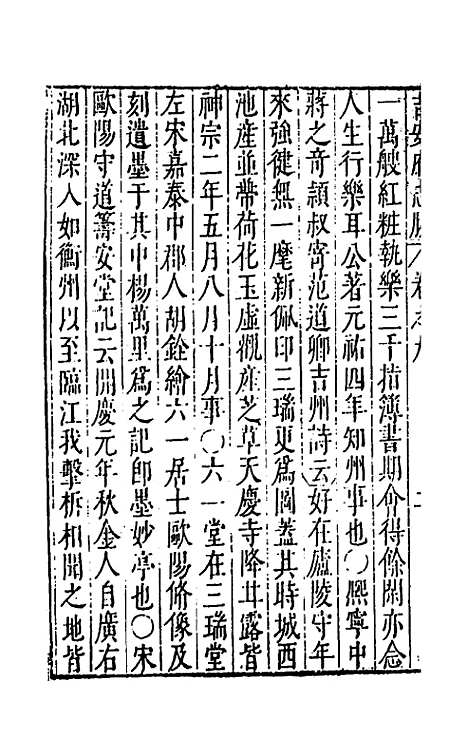 一萬艘紅粧執樂三千指簿書期會得餘閑亦念
人生行樂耳公著元祐四年知州事也○熙寧中
蔣之奇頴叔寄范道卿吉州詩云好在廬陵守年
來強健無一麾新佩印三瑞更爲圖蓋其時城西
池産並蒂荷花玉虛觀産芝草天慶寺降甘露皆
神宗二年五月八月十月事○六一堂在三瑞堂
左宋嘉泰中郡人胡銓繪六一居士歐陽脩像及
刻遺墨于其中楊萬里爲之記卽墨妙亭也○宋
歐陽守道籌安堂記云開慶元年秋金人自廣右
湖北深入如衡州以至臨江我擊柝相聞之地皆